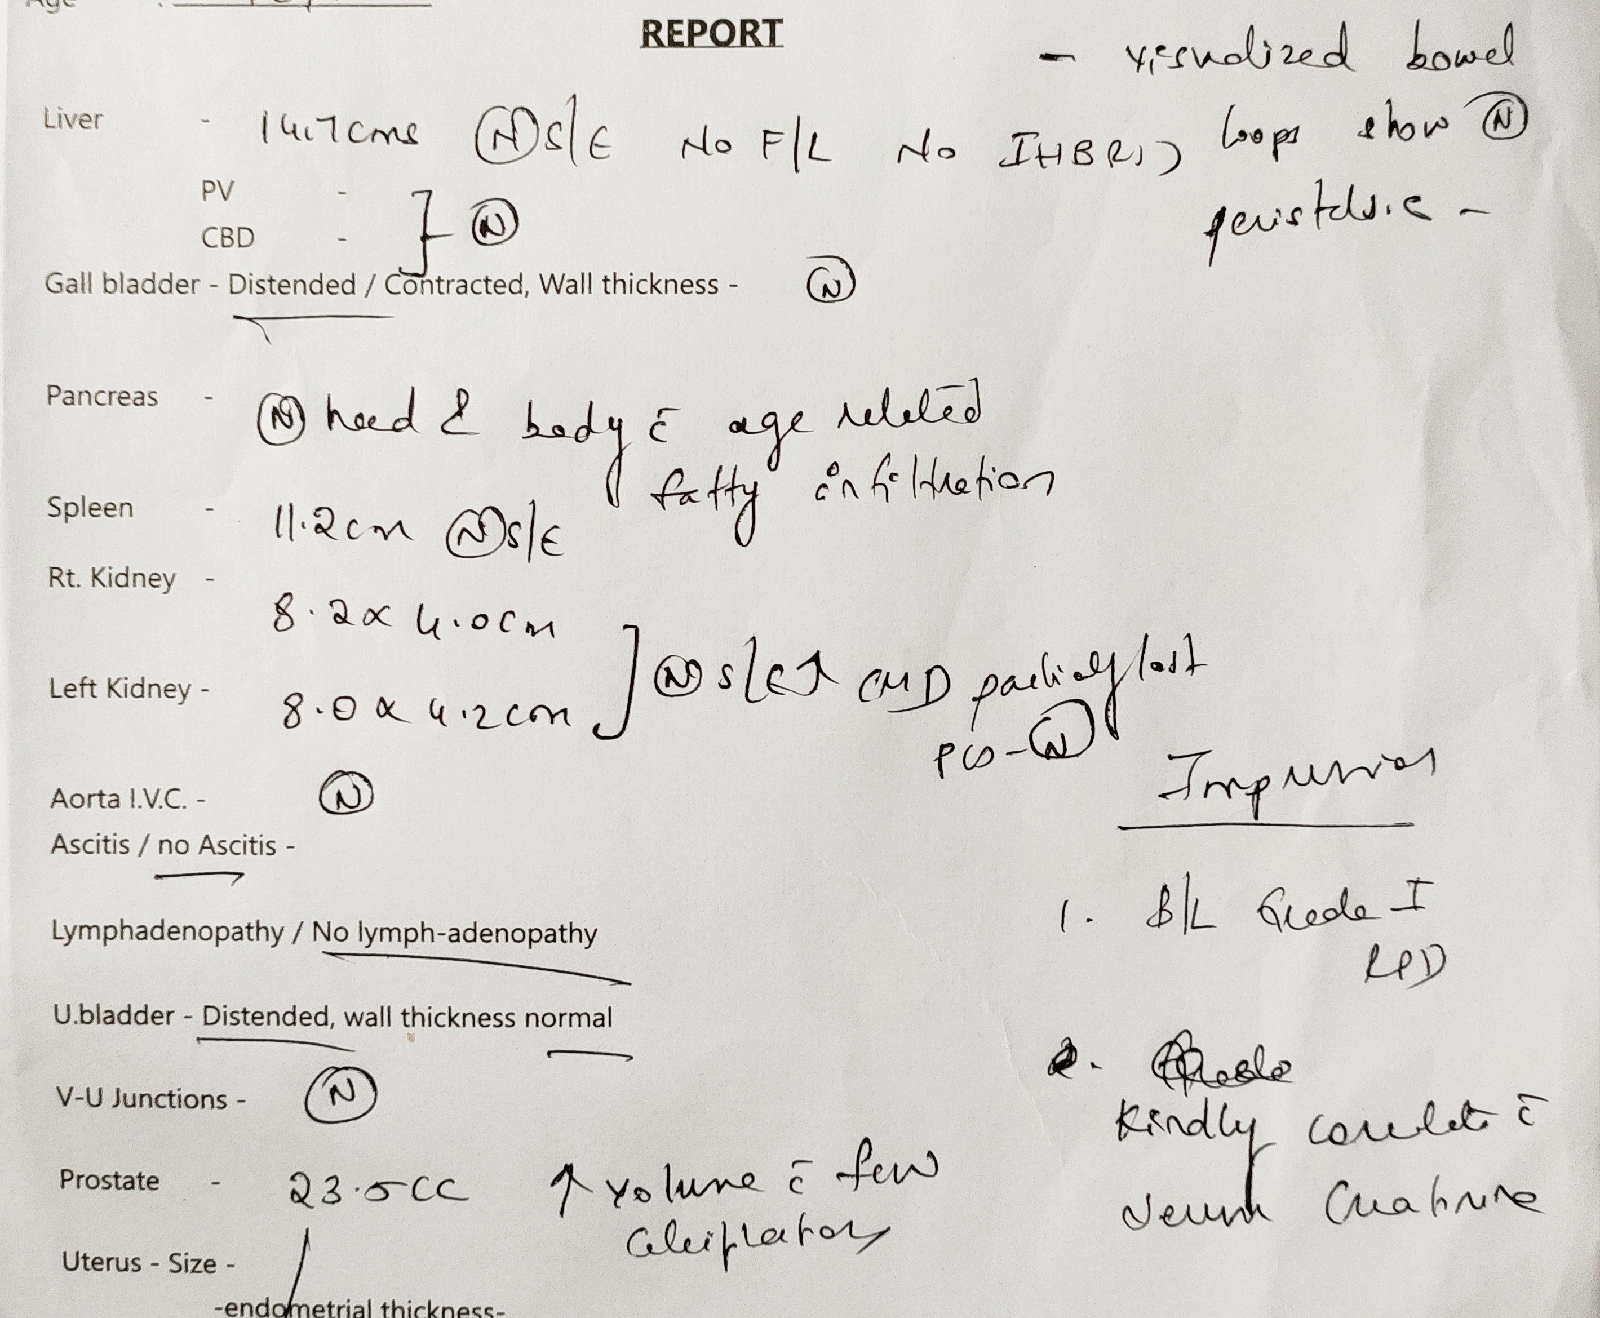 Age :
REPORT
- visualized bowel
loops show Ⓝ
peristalsis -
Liver - 14.7cms Ⓝ S/E No F/L No IHBRD
PV -
CBD - } Ⓝ
Gall bladder - Distended / Contracted, Wall thickness - Ⓝ
Pancreas - Ⓝ head & body c̄ age related
fatty infiltration
Spleen - 11.2cm Ⓝ S/E
Rt. Kidney - 8.2 x 4.0cm
Left Kidney - 8.0 x 4.2cm ] Ⓝ S/E↑ CMD partially lost
PCS - Ⓝ
Aorta I.V.C. - Ⓝ
Ascitis / no Ascitis -
Lymphadenopathy / No lymph-adenopathy
U.bladder - Distended, wall thickness normal
V-U Junctions - Ⓝ
Prostate - 23.5cc ↑ volume c̄ few
calcification
Uterus - Size -
-endometrial thickness-
Impression
1. B/L Grade I
RPD
2.
Kindly correlate c̄
Serum Creatinine